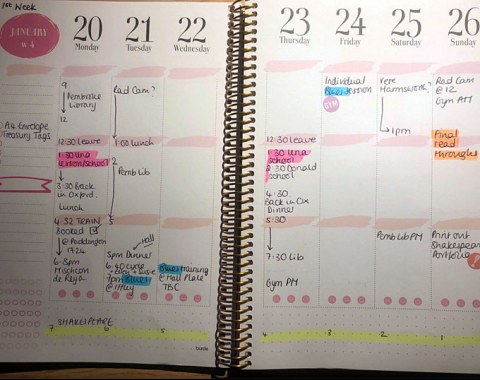 Week
JANUARY
w 4
A4 Envelope
Treasury Tags
20
Monday
9
Pembroke
Library
12
12:30 leave
1:30 Una
lesson/school
3:30 Back
in Oxford
Lunch
4:52 TRAIN
Booked
@ Paddington
1724
6-8pm
Mischcon
de Reya
SHAKESPEARE
7
21
Tuesday
Rad Cam?
1:00 lunch
2
Pemb Lib
5
5pm Dinner
6:40 cycle
7pm Blues
@ Iffley
6
22
Wednesday
Blues training
@
Place
TBC
5
23
Thursday
12:30 leave
1:30 Una
school
2:30 Donald
school
4:30
Back in Ox
Dinner
5:30
7:30 Lib
Gym PM
4
24
Friday
Individual
Blues session
GYM
3
25
Saturday
Pere
1pm
Pemb Lib PM
2
26
Sunday
Rad Cam
@ 12
Gym AM
Final
read
through
Print out
Shakespeare
Portfolio
1